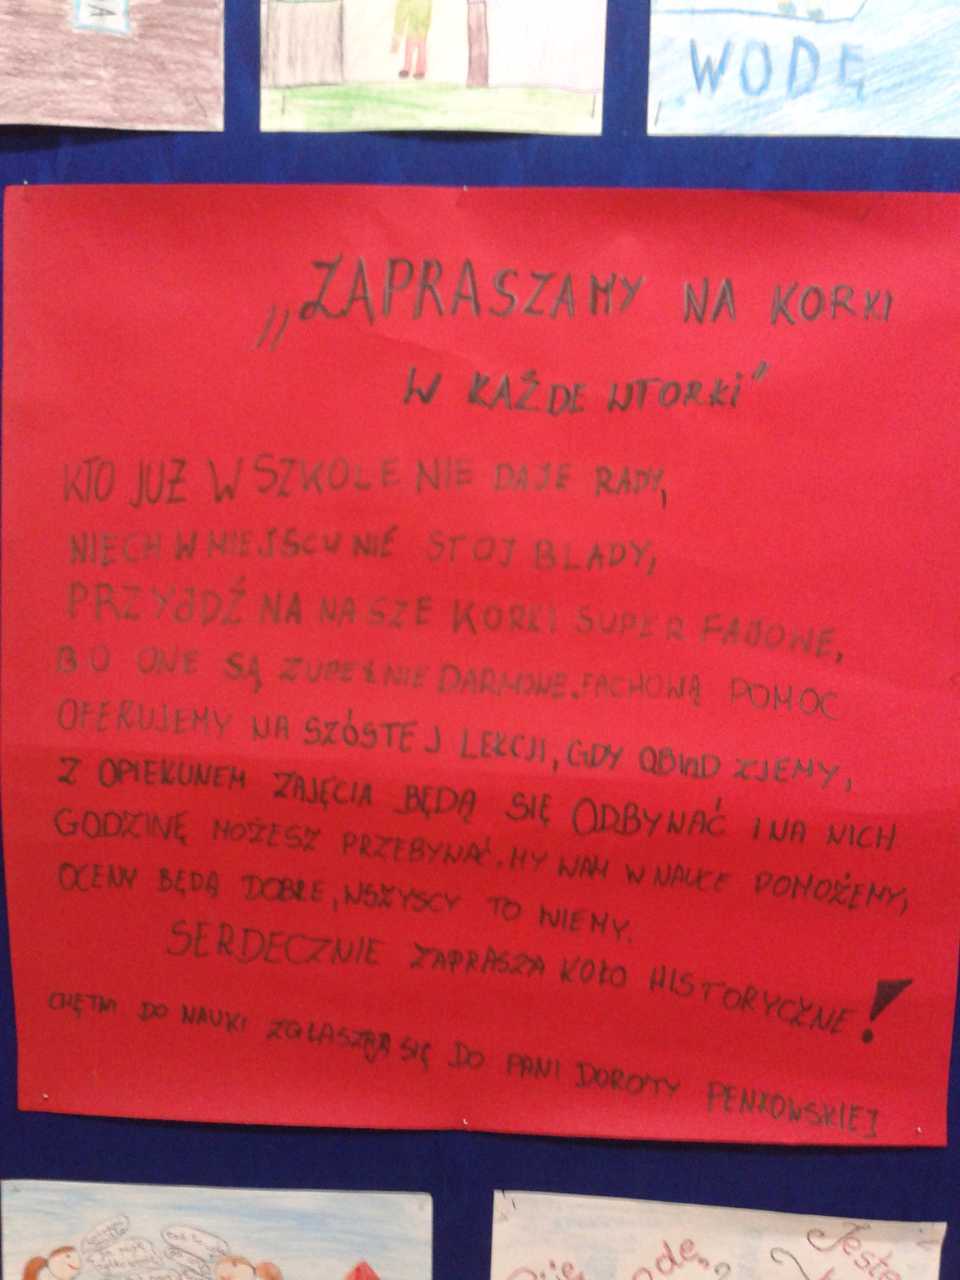 WODĘ
„ZAPRASZAMY NA KORKI
W KAŻDE WTORKI"
KTO JUŻ W SZKOLE NIE DAJE RADY,
NIECH W MIEJSCU NIE STOJ BLADY,
PRZYJDŹ NA NASZE KORKI SUPER FAJOWE,
BO ONE SĄ ZUPEŁNIE DARMOWE. FACHOWĄ POMOC
OFERUJEMY NA SZÓSTEJ LEKCJI, GDY OBIAD ZJEMY,
Z OPIEKUNEM ZAJĘCIA BĘDĄ SIĘ ODBYWAĆ I NA NICH
GODZINĘ MOŻESZ PRZEBYWAĆ. MY WAM W NAUCE POMOŻEMY,
OCENY BĘDĄ DOBRE, WSZYSCY TO WIEMY.
SERDECZNIE ZAPRASZA KOŁO HISTORYCZNE!
CHĘTNI DO NAUKI ZGŁASZAJĄ SIĘ DO PANI DOROTY PENKOWSKIEJ